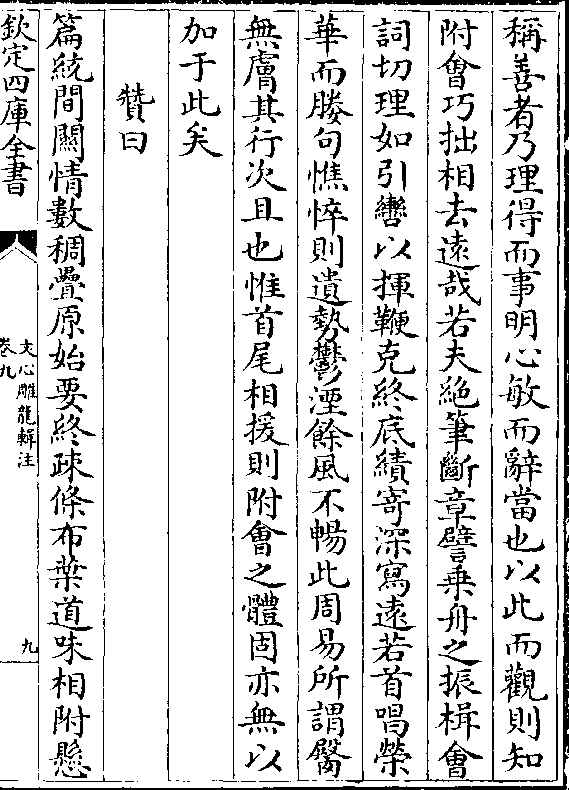 稱善者乃理得而事明心敏而辭當也以此而觀則知
附㑹巧拙相去逺哉若夫絶筆斷章譬乗舟之振楫㑹
詞切理如引轡以揮鞭克終底績寄深寫逺若首唱榮
華而媵句憔悴則遺勢鬱湮餘風不暢此周易所謂臀
無膚其行次且也惟首尾相援則附㑹之體固亦無以
加于此矣
贊曰
篇統間關情數稠疊原始要終疎條布葉道味相附懸
欽定四庫全書
文心雕龍輯注
卷九
九